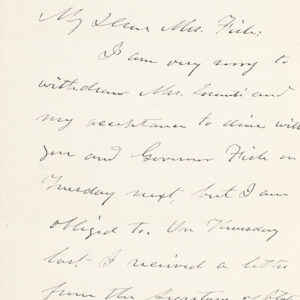 My Dear Mrs. Fish:
I am very sorry to
withdraw Mrs. and
my acceptance to dine with
you and Governor Fish on
Tuesday next, but I am
obliged to. On Thursday
last I received a letter
from the Secretary of